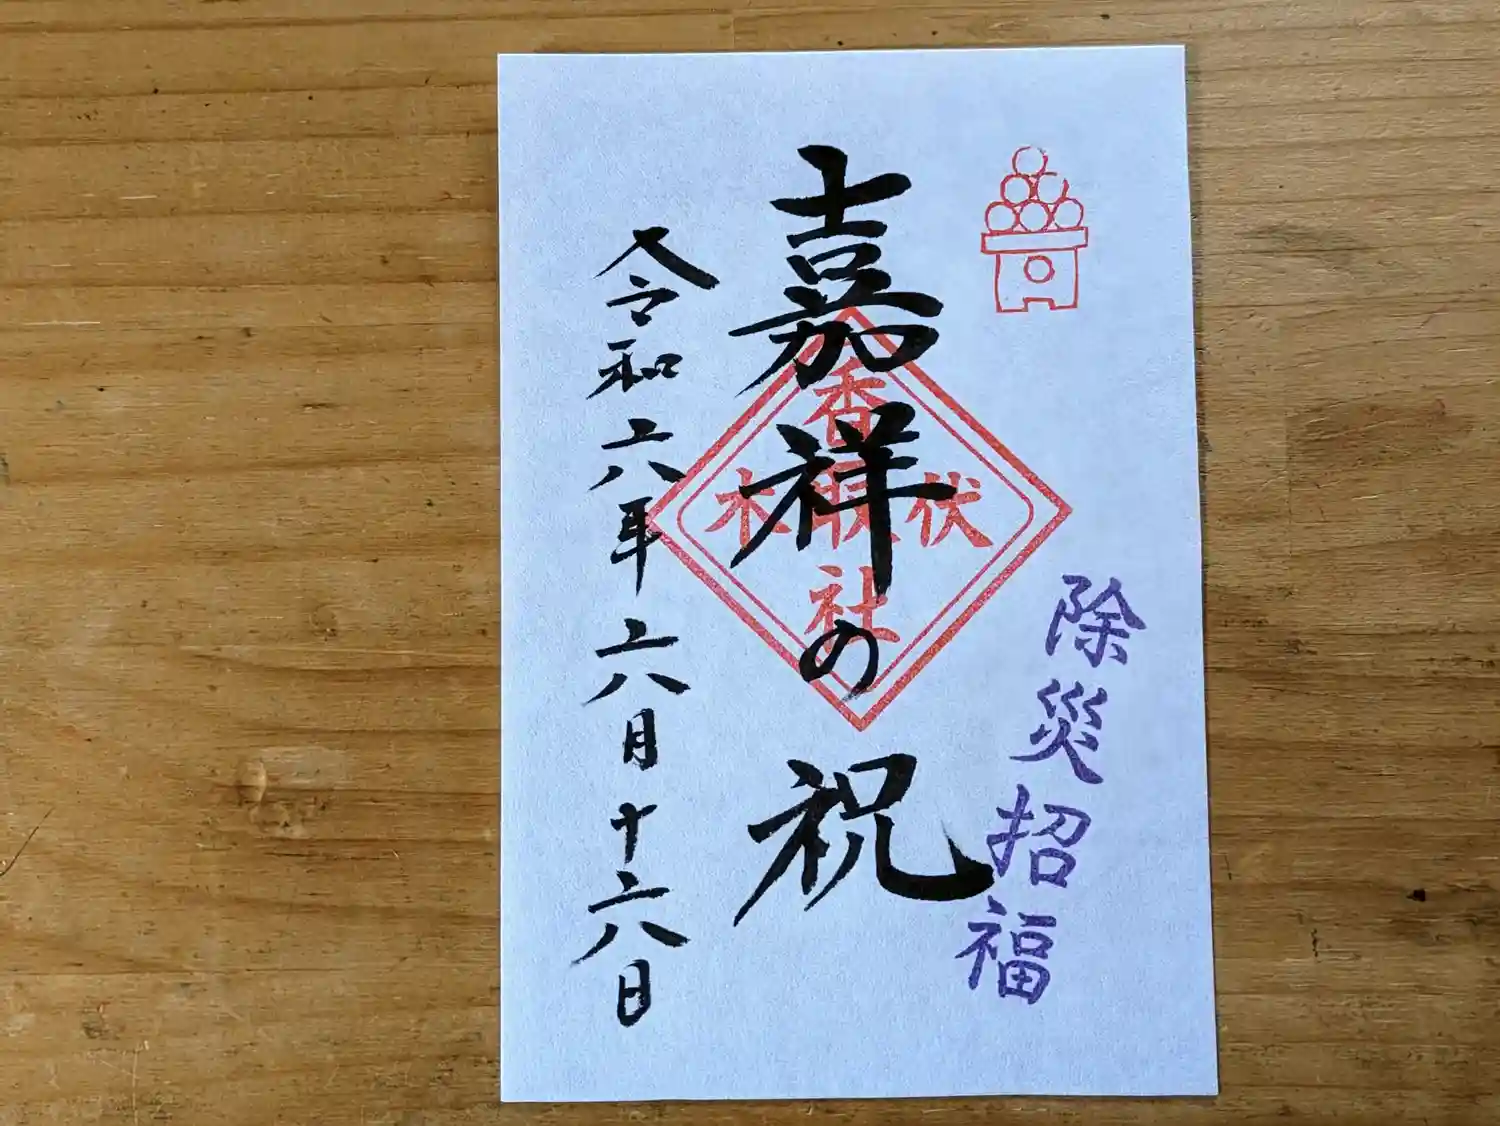 除災招福
嘉祥の祝
香取社
伏木
令和六年六月十六日